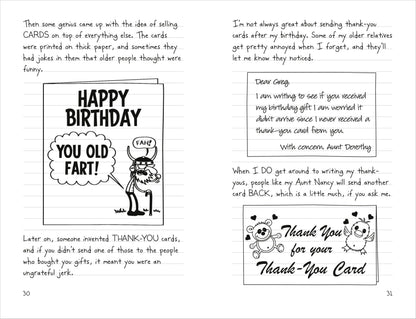 Then some genius came up with the idea of selling
CARDS on top of everything else. The cards
were printed on thick paper, and sometimes they
had jokes in them that older people thought were
funny.
HAPPY
BIRTHDAY
YOU OLD
FART!
EAH?
Later on, someone invented THANK-YOU cards,
and if you didn't send one of those to the people
who bought you gifts, it meant you were an
ungrateful jerk.
30
I'm not always great about sending thank-you
cards after my birthday. Some of my older relatives
get pretty annoyed when I forget, and they'll
let me know they noticed.
Dear Greg,
I am writing to see if you received
my birthday gift. I am worried it
didn't arrive since I never received a
thank-you card from you.
With concern, Aunt Dorothy
When I DO get around to writing my thank-
yous, people like my Aunt Nancy will send another
card BACK, which is a little much, if you ask me.
Thank You
for your
Thank-You Card
31